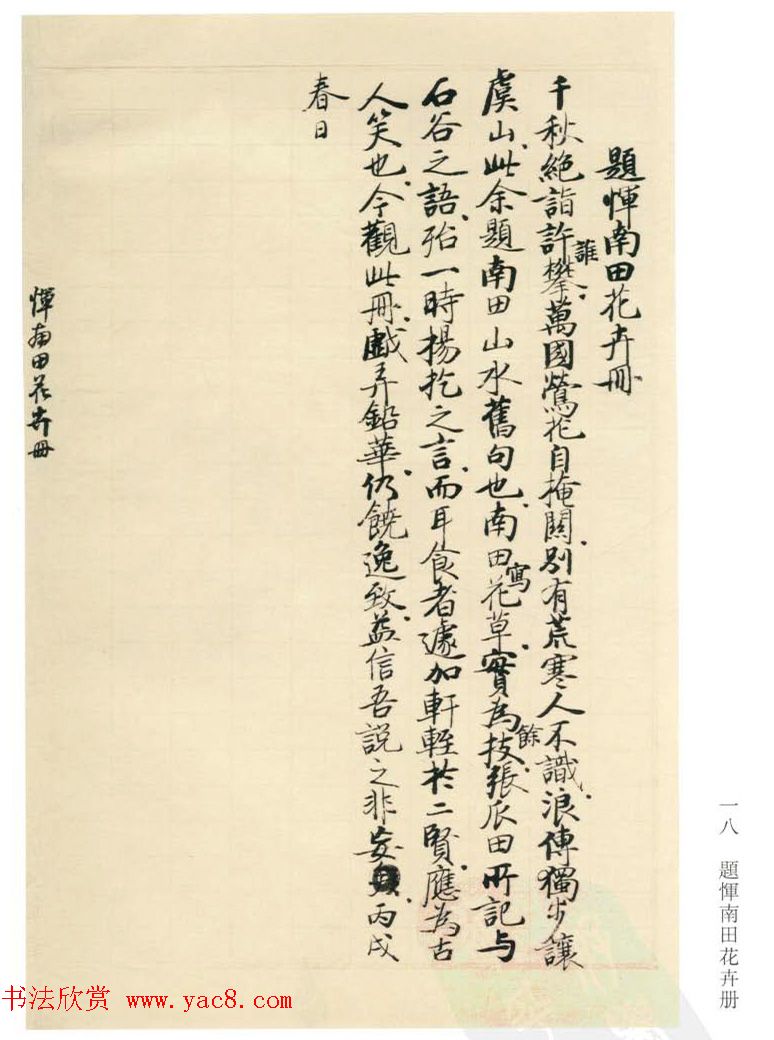 題惲南田花卉冊
千秋絶詣許誰攀萬國鶯花自掩關別有荒寒人不識浪傳獨步讓
虞山此余題南田山水舊句也南田寫花草實為餘技張瓜田所記与
石谷之語殆一時揚扢之言而耳食者遽加軒輊於二賢應為古
人笑也今觀此冊戲弄鉛華仍饒逸致益信吾説之非妄丙戌
春日
惲南田花卉冊
一八 題惲南田花卉册
书法欣赏 www.yac8.com